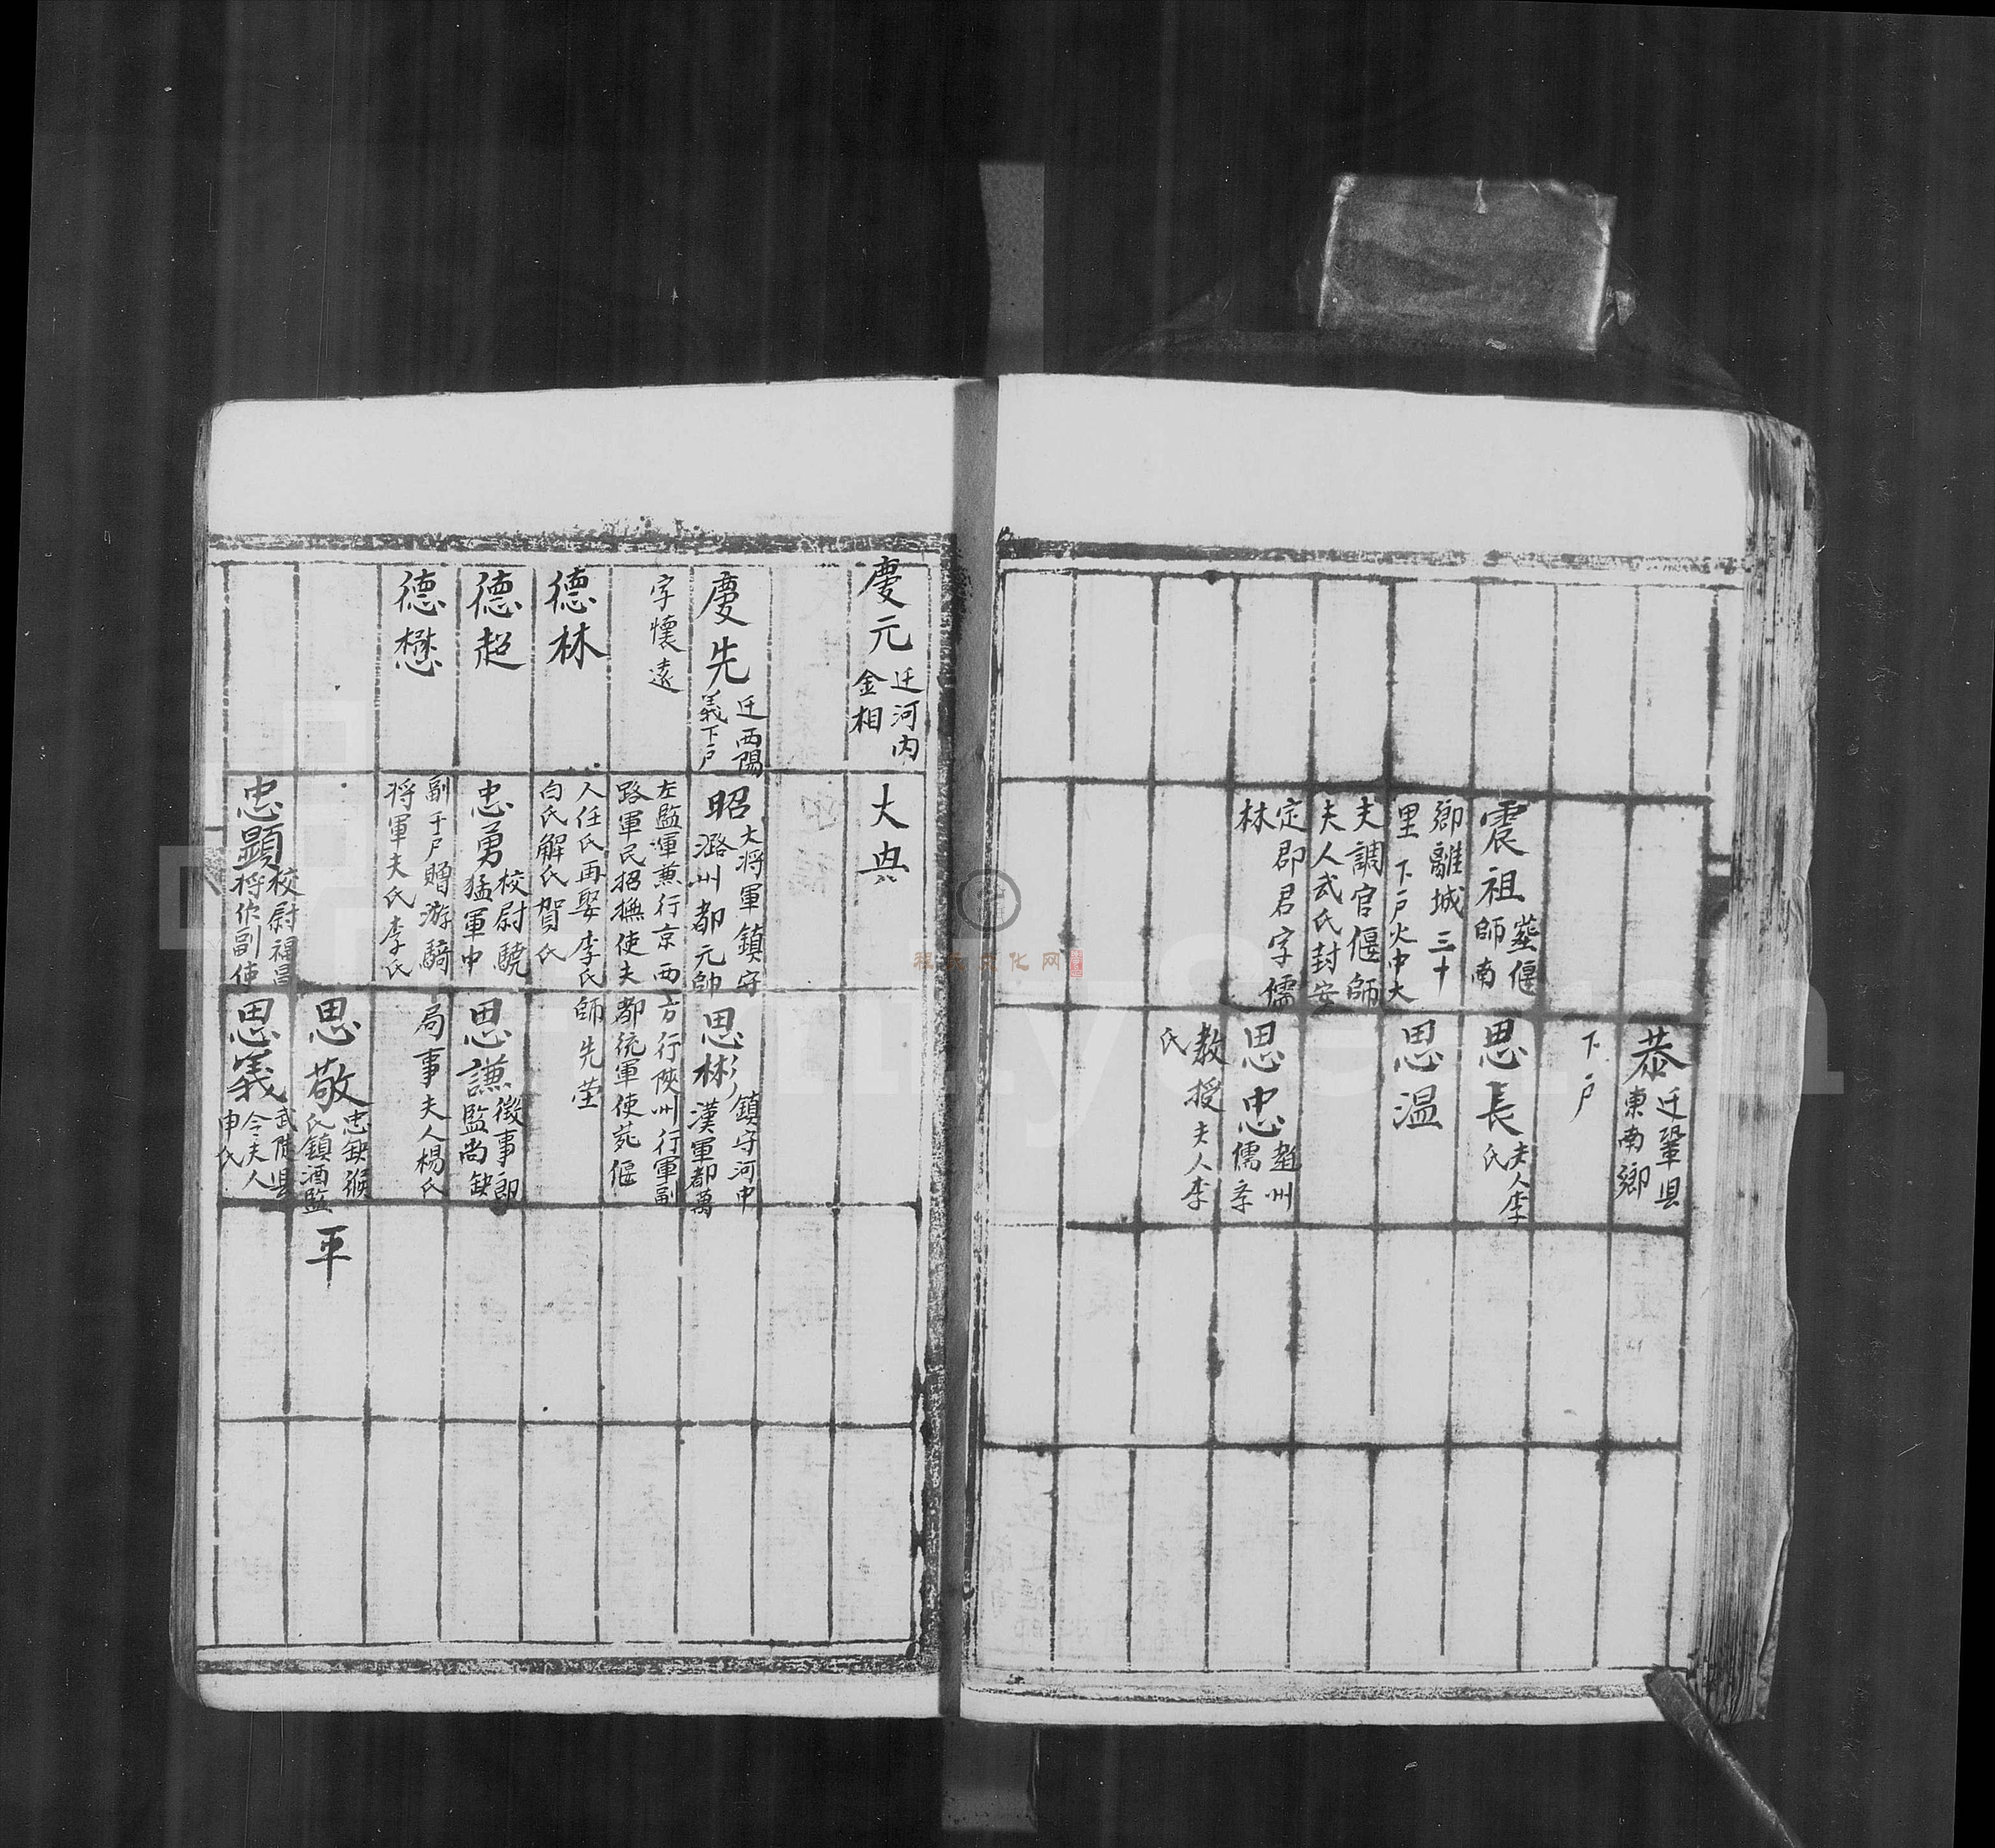 恭
迁鞏县
東南鄉
下户
震祖
塟偃
師南
鄉離城三十
里下户火中大
夫調官偃師
夫人武氏封安
定郡君字儒
林
思長
夫人李
氏
思温
思忠
州
儒李
教授夫人李
氏
慶元
迁河内
金相
大典
慶先
迁西陽
義下户
字懷遠
昭
大将軍鎮守
潞州都元帥
左監軍兼行京西
路軍民招撫使夫
人任氏再娶李氏
白氏解氏賀氏
思彬
鎮守河中
漢軍都萬
方行陝州行軍副
都統軍使苑偃
師先茔
德林
德超
忠勇
校尉驍
猛軍中
副千户贈游騎
将軍夫氏李氏
思謙
徵事郎
監尚缺
局事夫人楊氏
德懋
思敬
忠缺猴
氏鎮酒監
平
忠顕
校尉福昌
将作副使
思義
武陟县
令夫人
申氏
程氏文化网
FamilySearch